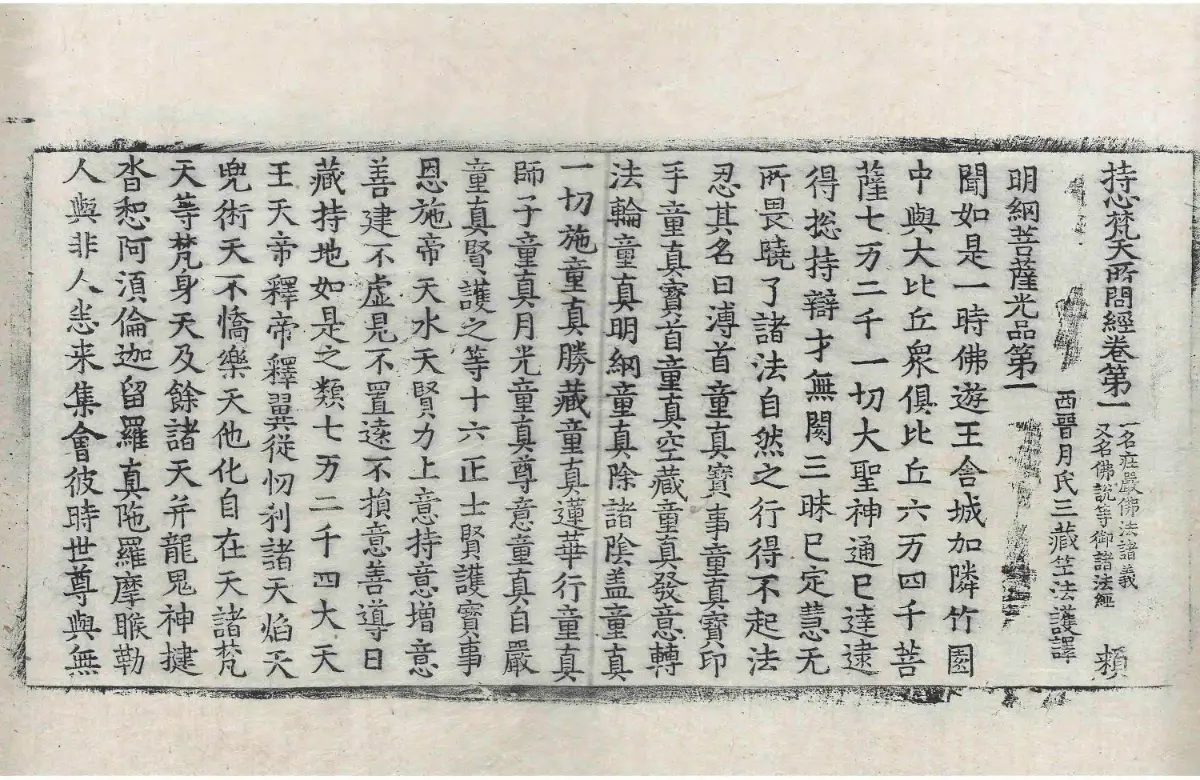 持心梵天所問經卷第一 一名莊嚴佛法諸義 又名佛說等御諸法經 賴
西晉月氏三藏竺法護譯
明網菩薩光品第一
聞如是一時佛遊王舍城加隣竹園
中與大比丘眾俱比丘六万四千菩
薩七万二千一切大聖神通已達逮
得揔持辯才無閡三昧已定慧无
所畏曉了諸法自然之行得不起法
忍其名曰溥首童真寶事童真寶印
手童真寶首童真空藏童真發意轉
法輪童真明網童真除諸陰盖童真
一切施童真勝藏童真蓮華行童真
師子童真月光童真尊意童真自嚴
童真賢護之等十六正士賢護寶事
恩施帝天水天賢力上意持意增意
善建不虛見不置遠不損意善導日
藏持地如是之類七万二千四大天
王天帝釋帝釋翼從忉利諸天焰天
兜術天不憍樂天他化自在天諸梵
天等梵身天及餘諸天并龍鬼神揵
沓惒阿須倫迦留羅真陁羅摩睺勒
人與非人悉来集會彼時世尊與無